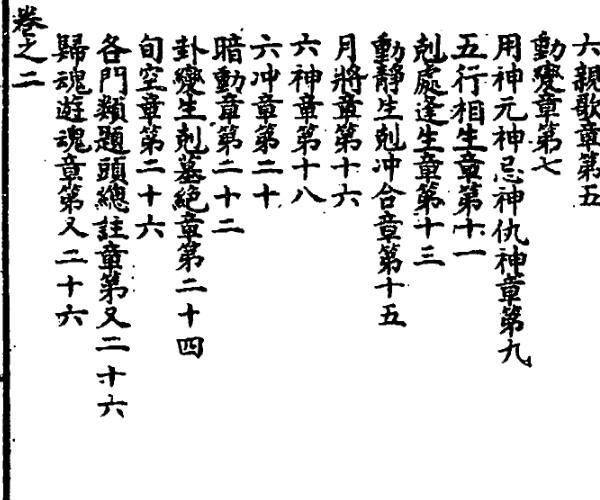 六親歌章第五
動變章第七
用神元神忌神仇神章第九
五行相生章第十一
剋處逢生章第十三
動靜生剋冲合章第十五
月將章第十六
六神章第十八
六冲章第二十
暗動章第二十二
卦變生剋墓絕章第二十四
旬空章第二十六
各門類題頭總註章第又二十六
歸魂遊魂章第又二十六
卷之二